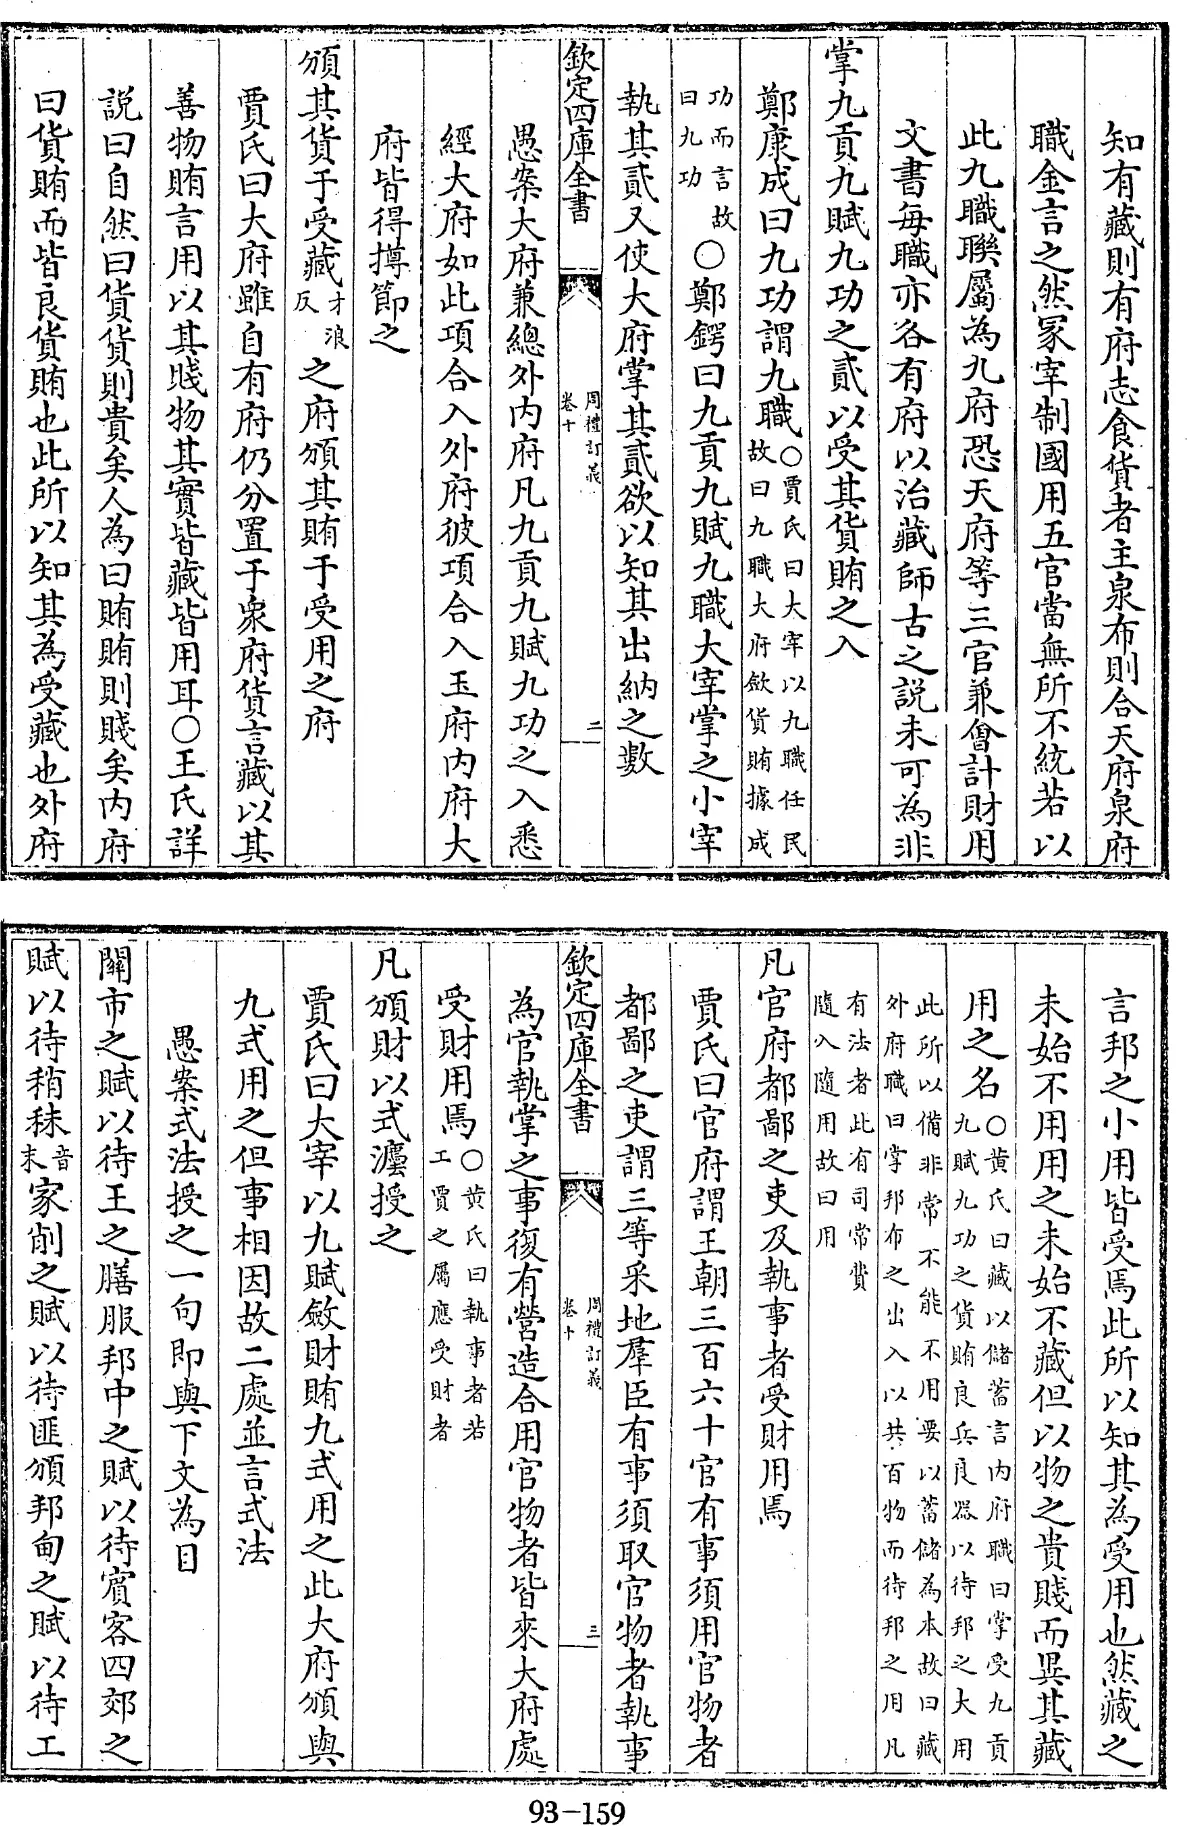 知有藏則有府志食貨者主泉布則合天府泉府
職金言之然冢宰制國用五官當無所不統若以
此九職聯屬為九府恐天府等三官兼㑹計財用
文書每職亦各有府以治藏師古之説未可為非
掌九貢九賦九功之貳以受其貨賄之入
鄭康成曰九功謂九職○賈氏曰大宰以九職任民
故曰九職大府斂貨賄據成
功而言故
曰九功
○鄭鍔曰九貢九賦九職大宰掌之小宰
執其貳又使大府掌其貳欲以知其出納之數
欽定四庫全書
周禮訂義
卷十
二
愚案大府兼總外内府凡九貢九賦九功之入悉
經大府如此項合入外府彼項合入玉府内府大
府皆得撙節之
頒其貨于受藏才浪
反
之府頒其賄于受用之府
賈氏曰大府雖自有府仍分置于衆府貨言藏以其
善物賄言用以其賤物其實皆藏皆用耳○王氏詳
説曰自然曰貨貨則貴矣人為曰賄賄則賤矣内府
曰貨賄而皆良貨賄也此所以知其為受藏也外府
言邦之小用皆受焉此所以知其為受用也然藏之
未始不用用之未始不藏但以物之貴賤而異其藏
用之名○黄氏曰藏以儲蓄言内府職曰掌受九貢
九賦九功之貨賄良兵良器以待邦之大用
此所以備非常不能不用要以蓄儲為本故曰藏
外府職曰掌邦布之出入以共百物而待邦之用凡
有法者此有司常費
隨入隨用故曰用
凡官府都鄙之吏及執事者受財用焉
賈氏曰官府謂王朝三百六十官有事須用官物者
都鄙之吏謂三等采地羣臣有事須取官物者執事
欽定四庫全書
周禮訂義
卷十
三
為官執掌之事復有營造合用官物者皆來大府處
受財用焉○黄氏曰執事者若
工賈之屬應受財者
凡頒財以式灋授之
賈氏曰大宰以九賦斂財賄九式用之此大府頒與
九式用之但事相因故二處並言式法
愚案式法授之一句即與下文為目
關市之賦以待王之膳服邦中之賦以待賓客四郊之
賦以待稍秣音
末
家削之賦以待匪頒邦甸之賦以待工
93-159